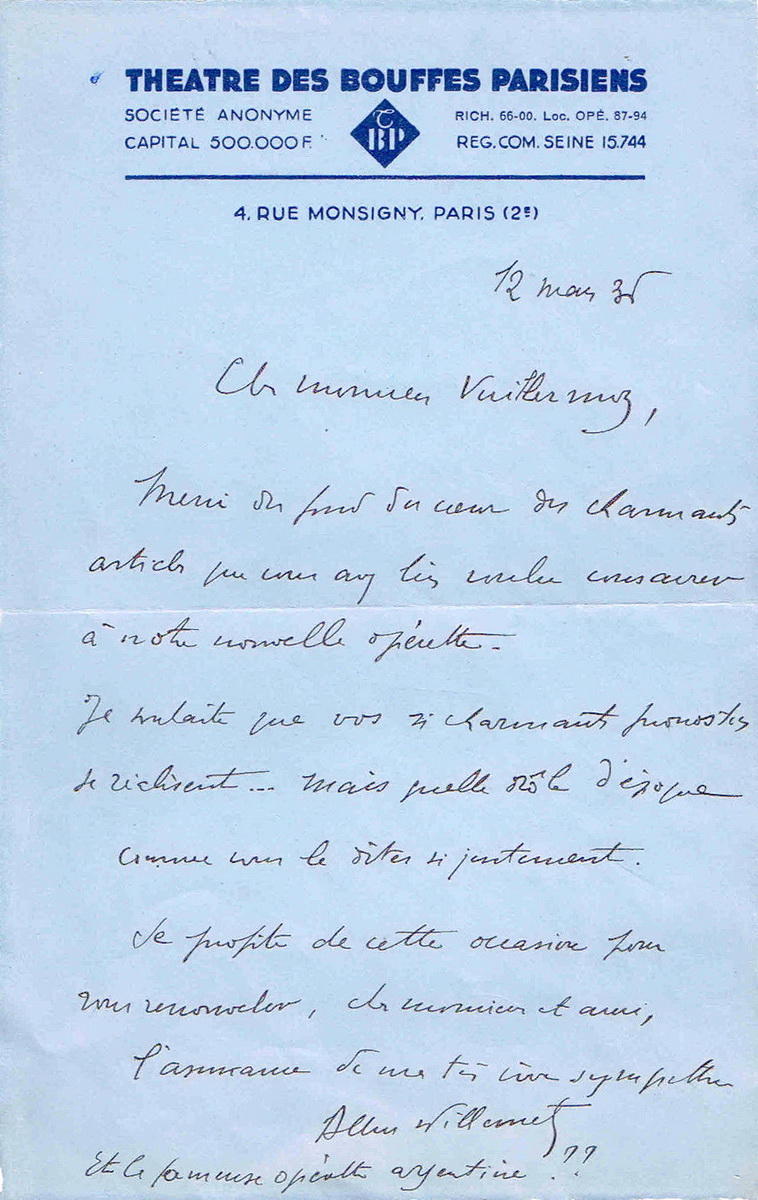 THEATRE DES BOUFFES PARISIENS
SOCIÉTÉ ANONYME
CAPITAL 500.000 F.
T
BP
RICH. 66-00. LOC. OPÉ. 87-94
REG. COM. SEINE 15.744
4, RUE MONSIGNY, PARIS (2e)
12 mars 35
Cher monsieur Vuillermoz,
Merci du fond du cœur des charmants
articles que vous avez bien voulu consacrer
à notre nouvelle opérette.
Je souhaite que vos si charmants pronostics
se réalisent... mais quelle drôle d'époque
comme vous le dites si justement.
Je profite de cette occasion pour
vous renouveler, cher monsieur et ami,
l'assurance de ma très vive sympathie
Albert Willemetz
Et la fameuse opérette argentine ??